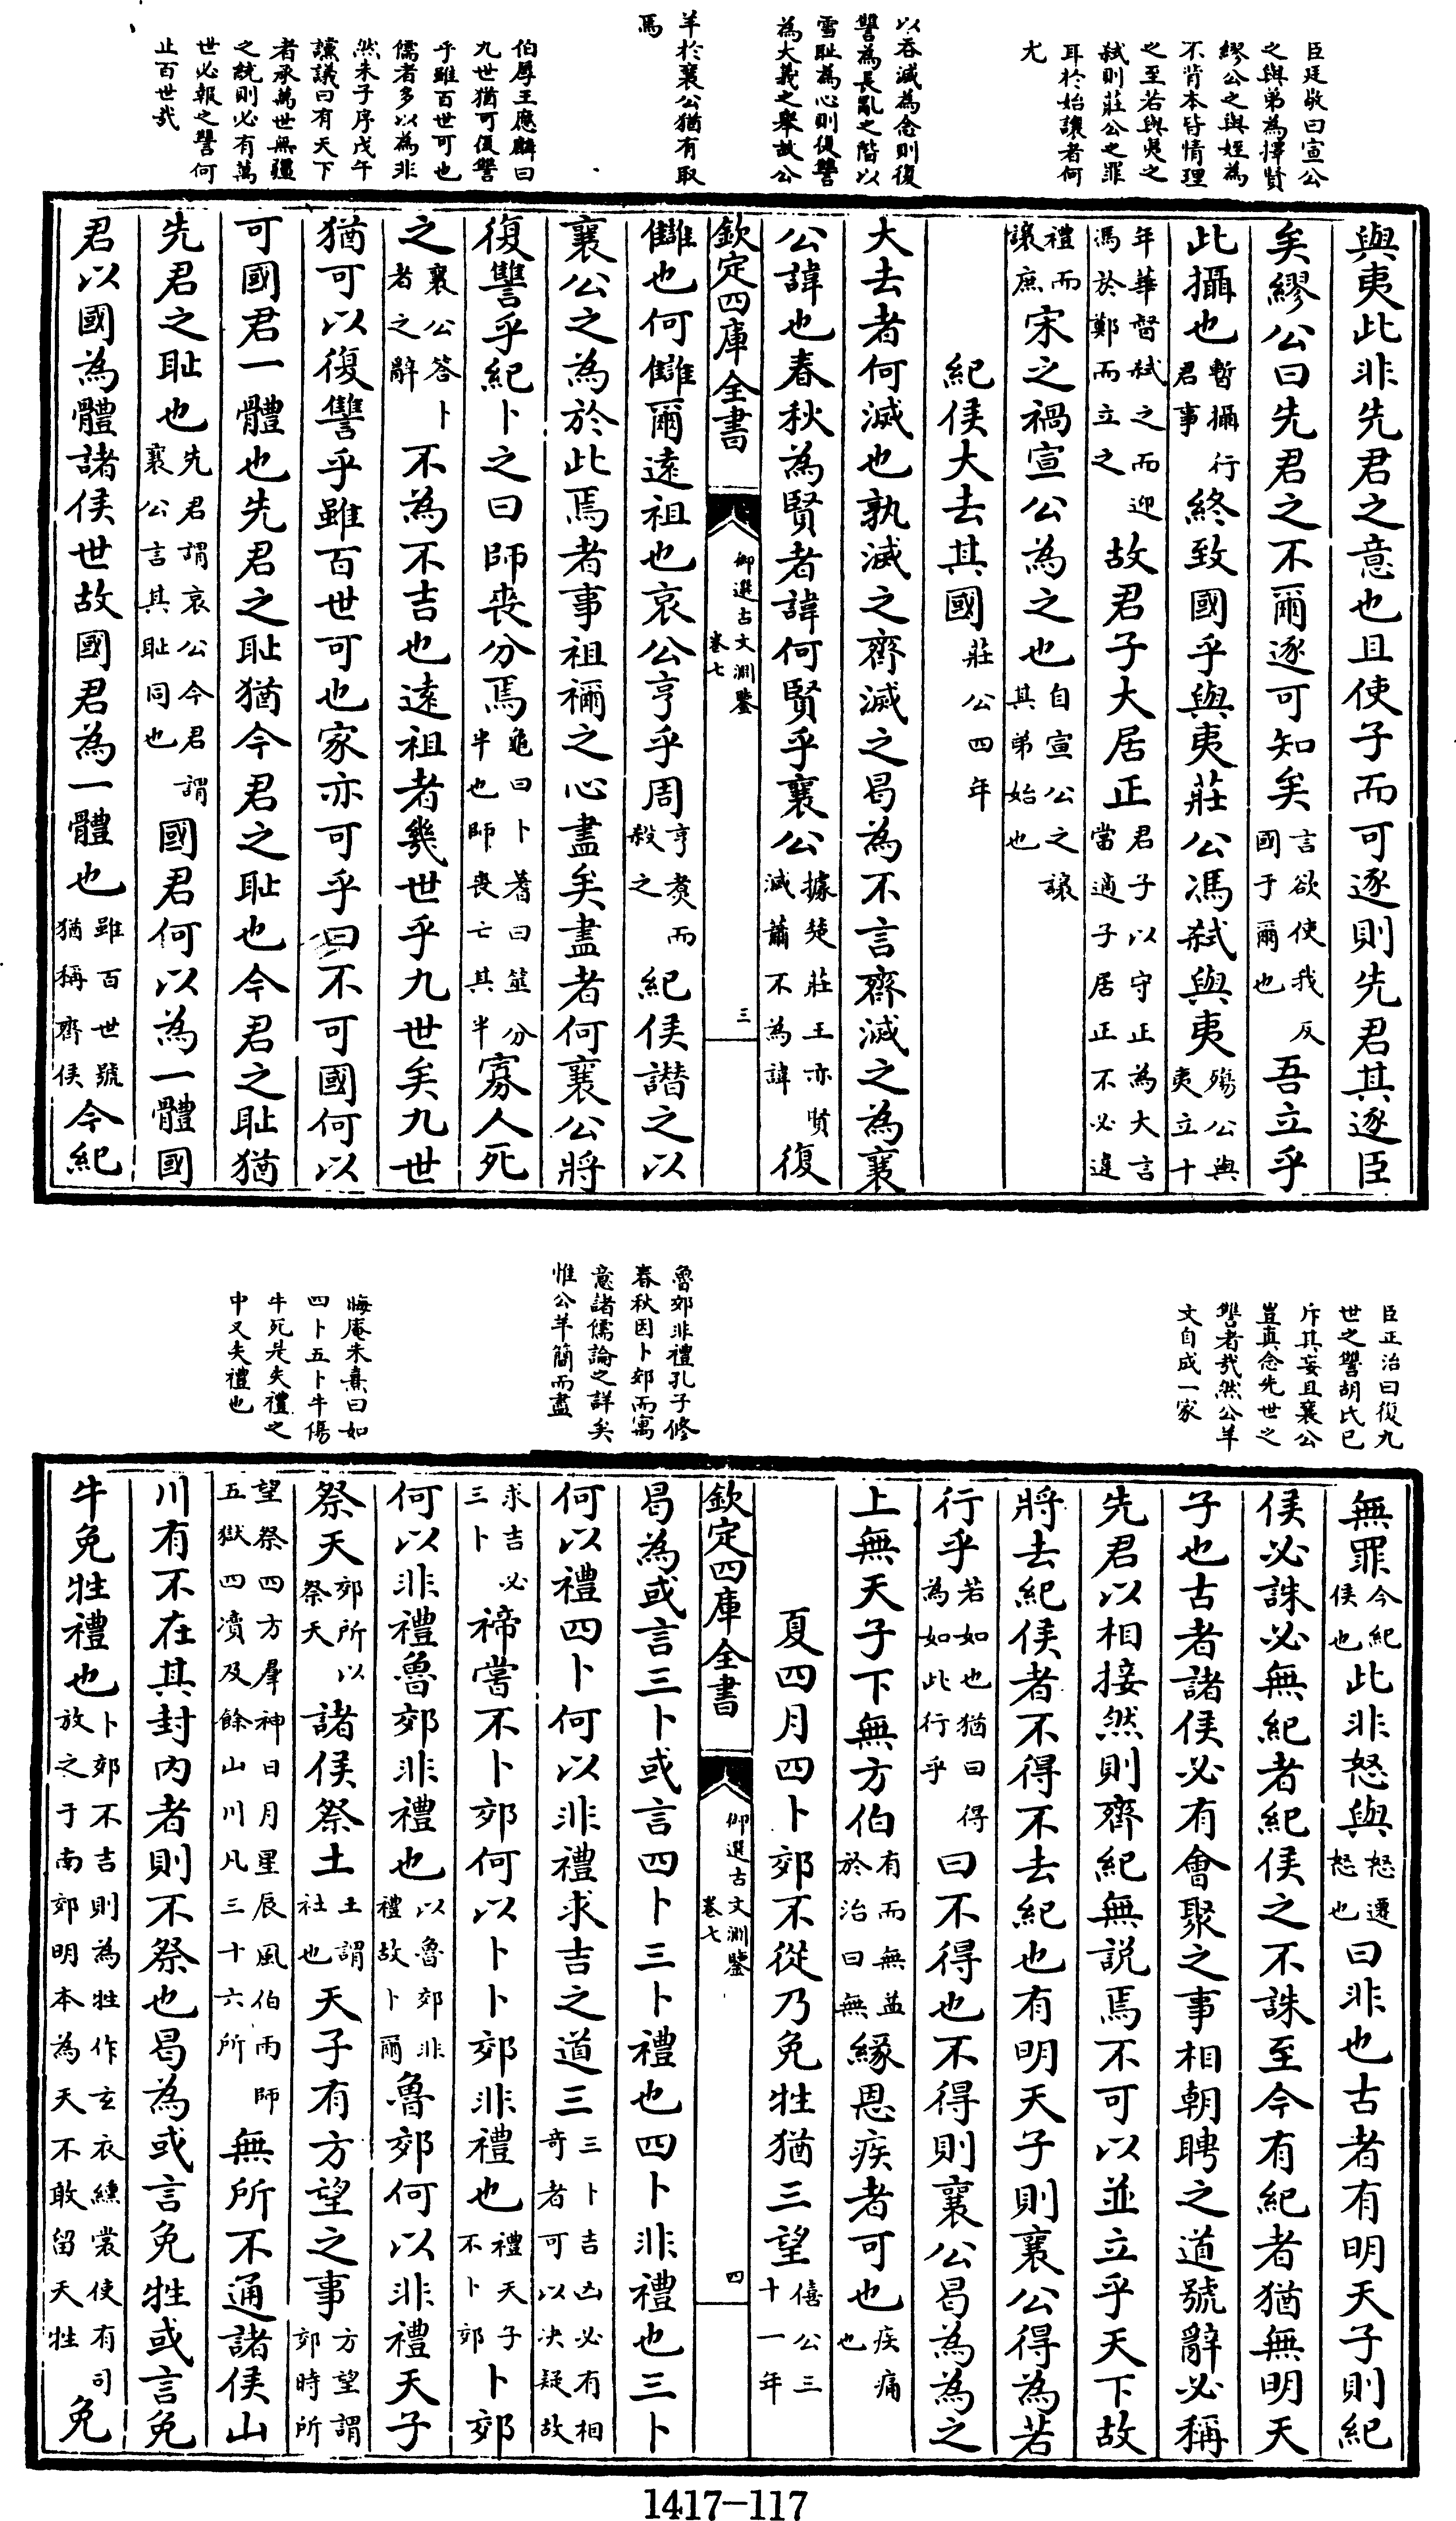 臣廷敬曰宣公
之與弟為擇賢
繆公之與姪為
不背本皆情理
之至若與夷之
弑則莊公之罪
耳於始讓者何
尤
以吞滅為念則復
讐為長亂之階以
雪耻為心則復讐
為大義之舉故公
羊於襄公猶有取
焉
伯厚王應麟曰
九世猶可復讐
乎雖百世可也
儒者多以為非
然朱子序戊午
讜議曰有天下
者承萬世無疆
之統則必有萬
世必報之讐何
止百世哉
與夷此非先君之意也且使子而可逐則先君其逐臣
矣繆公曰先君之不爾逐可知矣言欲使我反國于爾也吾立乎
此攝也暫攝行君事終致國乎與夷莊公馮弑與夷殤公與夷立十
年華督弑之而迎馮於鄭而立之故君子大居正君子以守正為大言當適子居正不必違
禮而讓庶宋之禍宣公為之也自宣公之讓其弟始也
紀侯大去其國莊公四年
大去者何滅也孰滅之齊滅之曷為不言齊滅之為襄
公諱也春秋為賢者諱何賢乎襄公據楚莊王亦賢滅蕭不為諱復
欽定四庫全書
御選古文淵鑒
卷七
三
讎也何讎爾遠祖也哀公亨乎周亨煑而殺之紀侯譖之以
襄公之為於此焉者事祖禰之心盡矣盡者何襄公將
復讐乎紀卜之曰師喪分焉龜曰卜蓍曰筮分半也師喪亡其半寡人死
之襄公答卜者之辭不為不吉也遠祖者幾世乎九世矣九世
猶可以復讐乎雖百世可也家亦可乎曰不可國何以
可國君一體也先君之耻猶今君之耻也今君之耻猶
先君之耻也先君謂哀公今君謂襄公言其耻同也國君何以為一體國
君以國為體諸侯世故國君為一體也雖百世號猶稱齊侯今紀
臣正治曰復九
世之讐胡氏已
斥其妄且襄公
豈真念先世之
讐者哉然公羊
文自成一家
魯郊非禮孔子修
春秋因卜郊而寓
意諸儒論之詳矣
惟公羊簡而盡
晦庵朱熹曰如
四卜五卜牛傷
牛死是失禮之
中又失禮也
無罪今紀侯也此非怒與怒遷怒也曰非也古者有明天子則紀
侯必誅必無紀者紀侯之不誅至今有紀者猶無明天
子也古者諸侯必有會聚之事相朝聘之道號辭必稱
先君以相接然則齊紀無說焉不可以並立乎天下故
將去紀侯者不得不去紀也有明天子則襄公得為若
行乎若如也猶曰得為如此行乎曰不得也不得則襄公曷為為之
上無天子下無方伯有而無益於治曰無緣恩疾者可也疾痛也
夏四月四卜郊不從乃免牲猶三望僖公三十一年
欽定四庫全書
御選古文淵鑒
卷七
四
曷為或言三卜或言四卜三卜禮也四卜非禮也三卜
何以禮四卜何以非禮求吉之道三三卜吉凶必有相奇者可以決疑故
求吉必三卜禘嘗不卜郊何以卜卜郊非禮也禮天子不卜郊卜郊
何以非禮魯郊非禮也以魯郊非禮故卜爾魯郊何以非禮天子
祭天郊所以祭天諸侯祭土土謂社也天子有方望之事方望謂郊時所
望祭四方羣神日月星辰風伯雨師五嶽四瀆及餘山川凡三十六所無所不通諸侯山
川有不在其封內者則不祭也曷為或言免牲或言免
牛免牲禮也卜郊不吉則為牲作玄衣纁裳使有司放之于南郊明本為天不敢留天牲免
1417-117